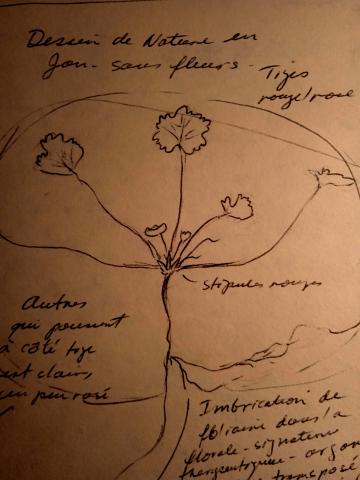 Dessin de Nature en
Jan - sans fleurs -
Tiges
rouge/rose
stipules rouges
Autres
qui poussent
à côté tige
vert clair,
un peu rosé
Imbrication de
foliaire dans la
florale - signature
transposé